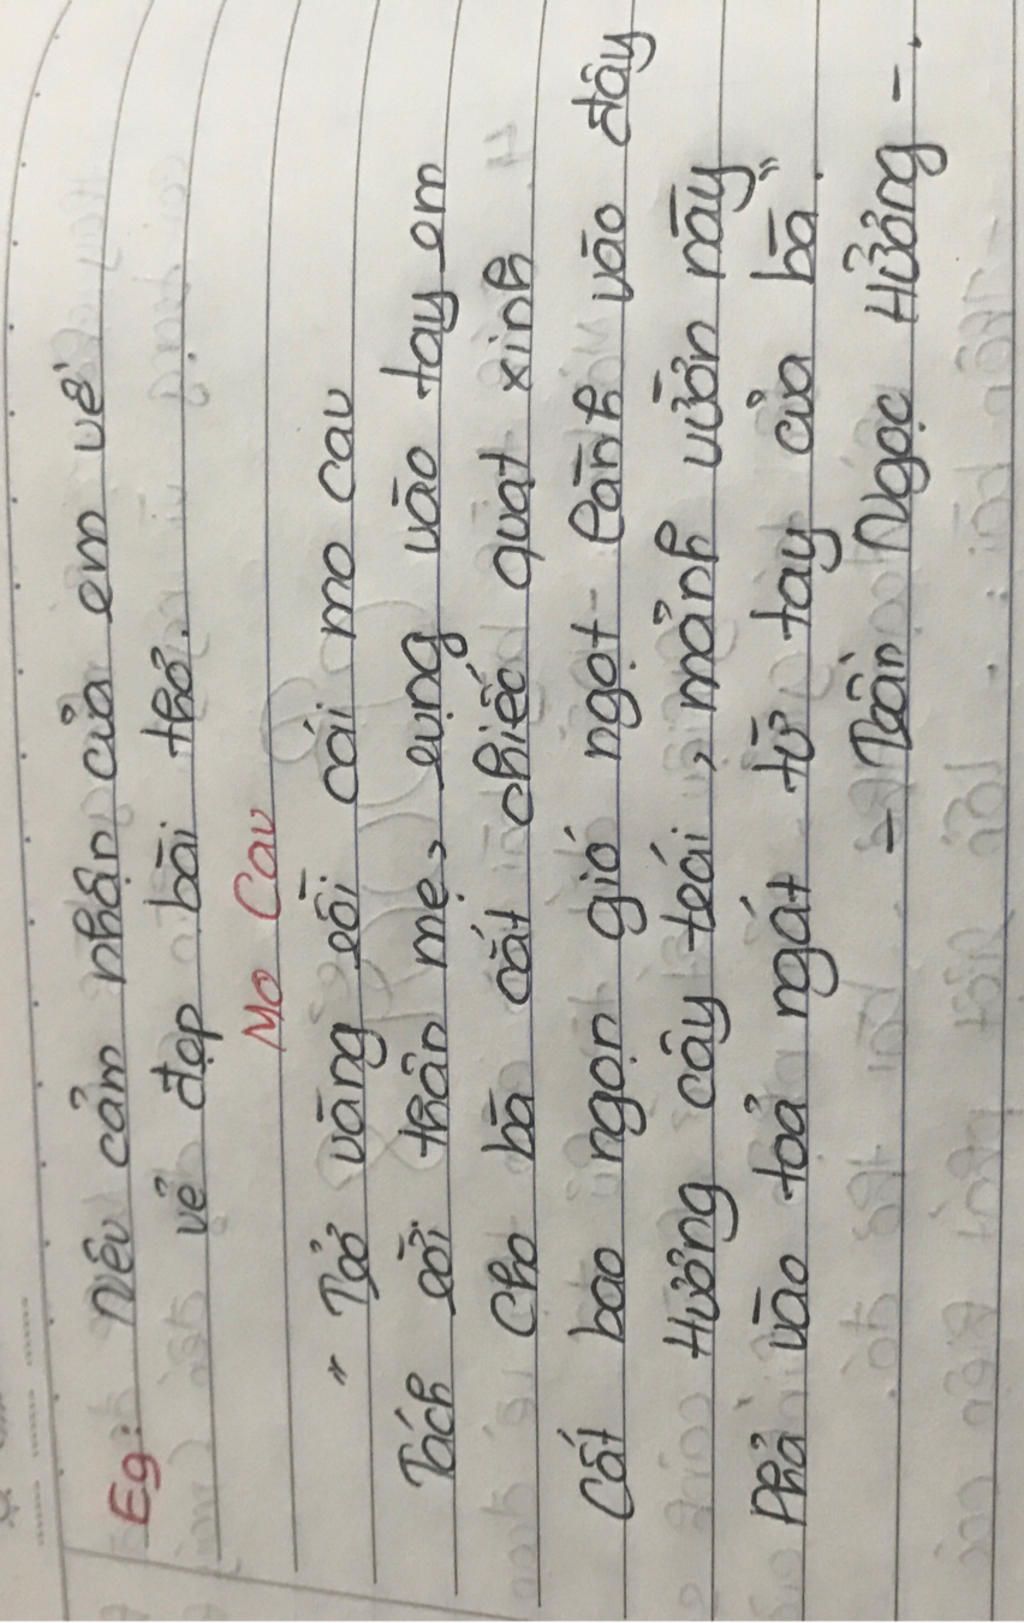 Eg: Nêu cảm nhận của em về
vẻ đẹp bài thơ.
Mo Cau
"Tờ vàng rồi cái mo cau
Tách rời thân mẹ, rụng vào tay em
Cho bà cắt chiếc quạt xinh
Cất bao ngọn gió ngọt lành vào đây
Hương cây trái, mảnh vườn này
Phả vào toả ngát từ tay của bà".
- Trần Ngọc Hưởng -.